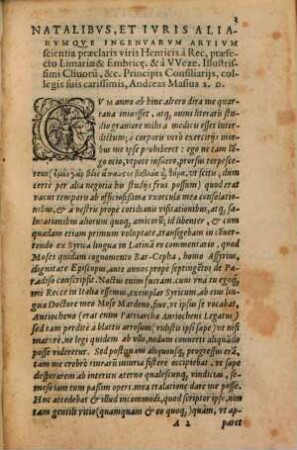 3
NATALIBVS, ET IVRIS ALIA-
RVMQVE INGENVARVM ARTIVM
scientia præclaris viris Henricis à Rec, præfe-
cto Limariæ & Embricę, & à VVeze. Illustris-
simi Cliuorū, &c. Principis Consiliarijs, col-
legis suis carissimis, Andreas Masius S. D.
CVM anno ab hinc altero dira me quar-
tana inuasisset, atq́, omni literarū stu-
dio grauiore mihi à medicis esset inter-
dictum; à corporis verò exercitijs mor-
bus me ipse prohiberet: ego ne tam lō-
go ocio, vtpote insueto, prorsus torpesce-
rem vt scitis; dum
certe per alia negotia his studijs frui possum) quod erat
vacui temporis ab officiosissima vxorcula mea consolationi-
bus, & à vestris prope cotidianis visitationibus, atq́, fa-
miliarium aliorum quoq́, amicorū, id libenter, & cum
quadam etiam primum voluptate, transigebam in conuer-
tendo ex Syrica lingua in Latinā eo commentario, quod
Moses quidam cognomento Bar-Cepha, homo Assyrius,
dignitate Episcopus, ante annos prope septingētos de Pa-
radiso conscripsit. Nactus enim fueram, cum essem, quą
mi Recce in Italia essemus, exemplar Syricum, ab eius
lingua Doctore meo Mose Mardeno, siue, vt ipse se vocabat,
Antiocheno (erat enim Patriarchæ Antiocheni Legatus)
sed tam perdite à blattis arrosum; vt
maxēr, ne legi quidem ab vllo, nedum conuerti aliquādo
posse videretur. Sed postquam aliquousq́, progressus erā,
tam me crebrò itinerariæ iniuria sistere occipiebat, vt sæpe
desperarem ab interitu æterno vindicias,
meas rum passim opers. mea tralatione dare me posse.
Huc accedebat & illud incommodi, quod scriptor ipse, non
tam gentili vitio (quamquam & eo quoq́,) quam, vt ap-
A 2 paret